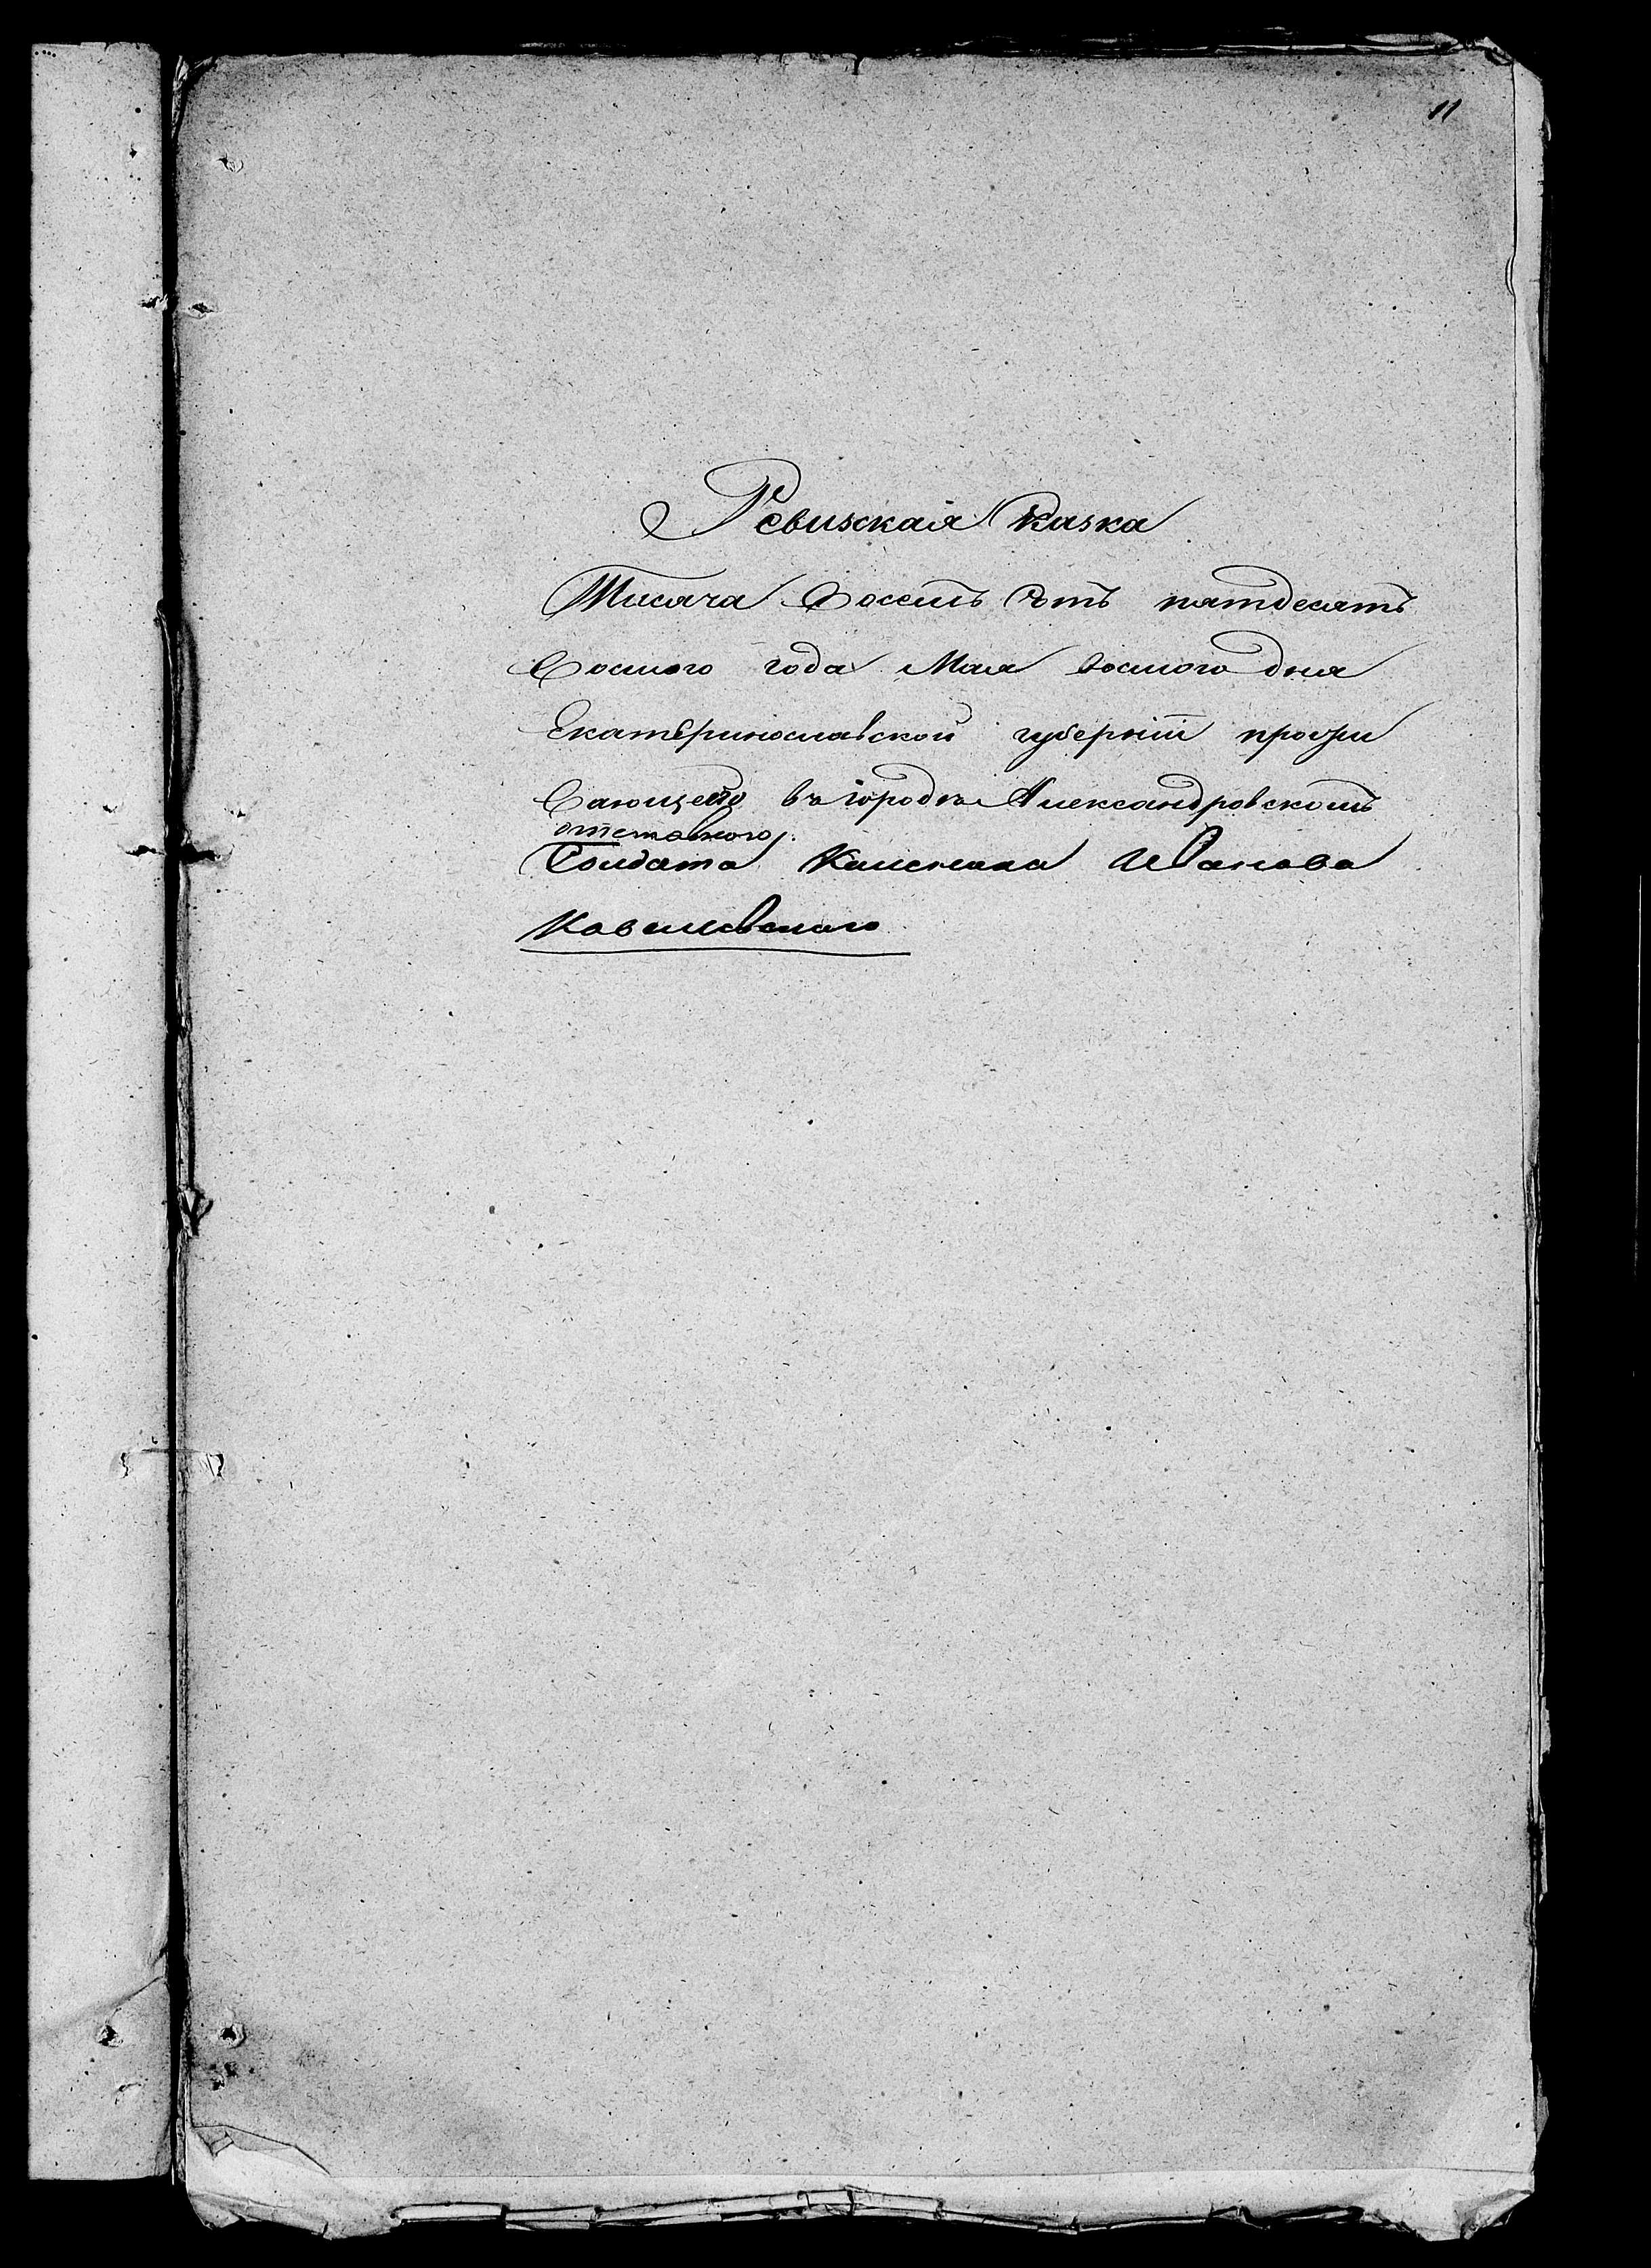 11
Ревизская Сказка
Тисяча Восемь Сотъ пятдесятъ
Восмого года Мая восмого дня
Екатеринославской губерніи прожи
Вающего въ городѣ Александровскомъ
отставного
Солдата Иванова